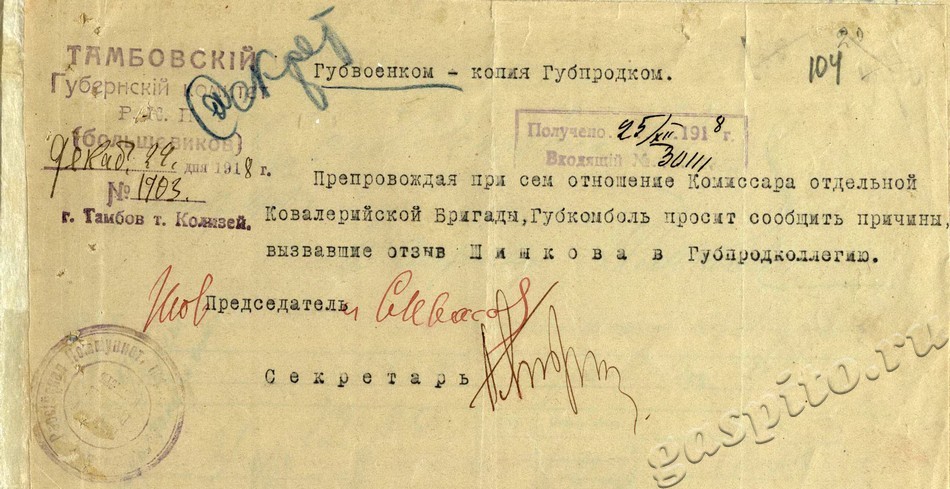 ТАМБОВСКІЙ
Губернскій комитет
Р. К. П.
(большевиков)
декаб. 22. дня 1918 г.
№ 1903.
г. Тамбов т. Колизей.
Секрет
104
Губвоенком - копия Губпродком.
Получено 25/XII 1918 г.
Входящій №
Препровождая при сем отношение Комиссара отдельной
Ковалерийской Бригады, Губкомболь просит сообщить причины,
вызвавшие отзыв Шишкова в Губпродколлегию.
Тов Председатель
Секретарь
gaspito.ru